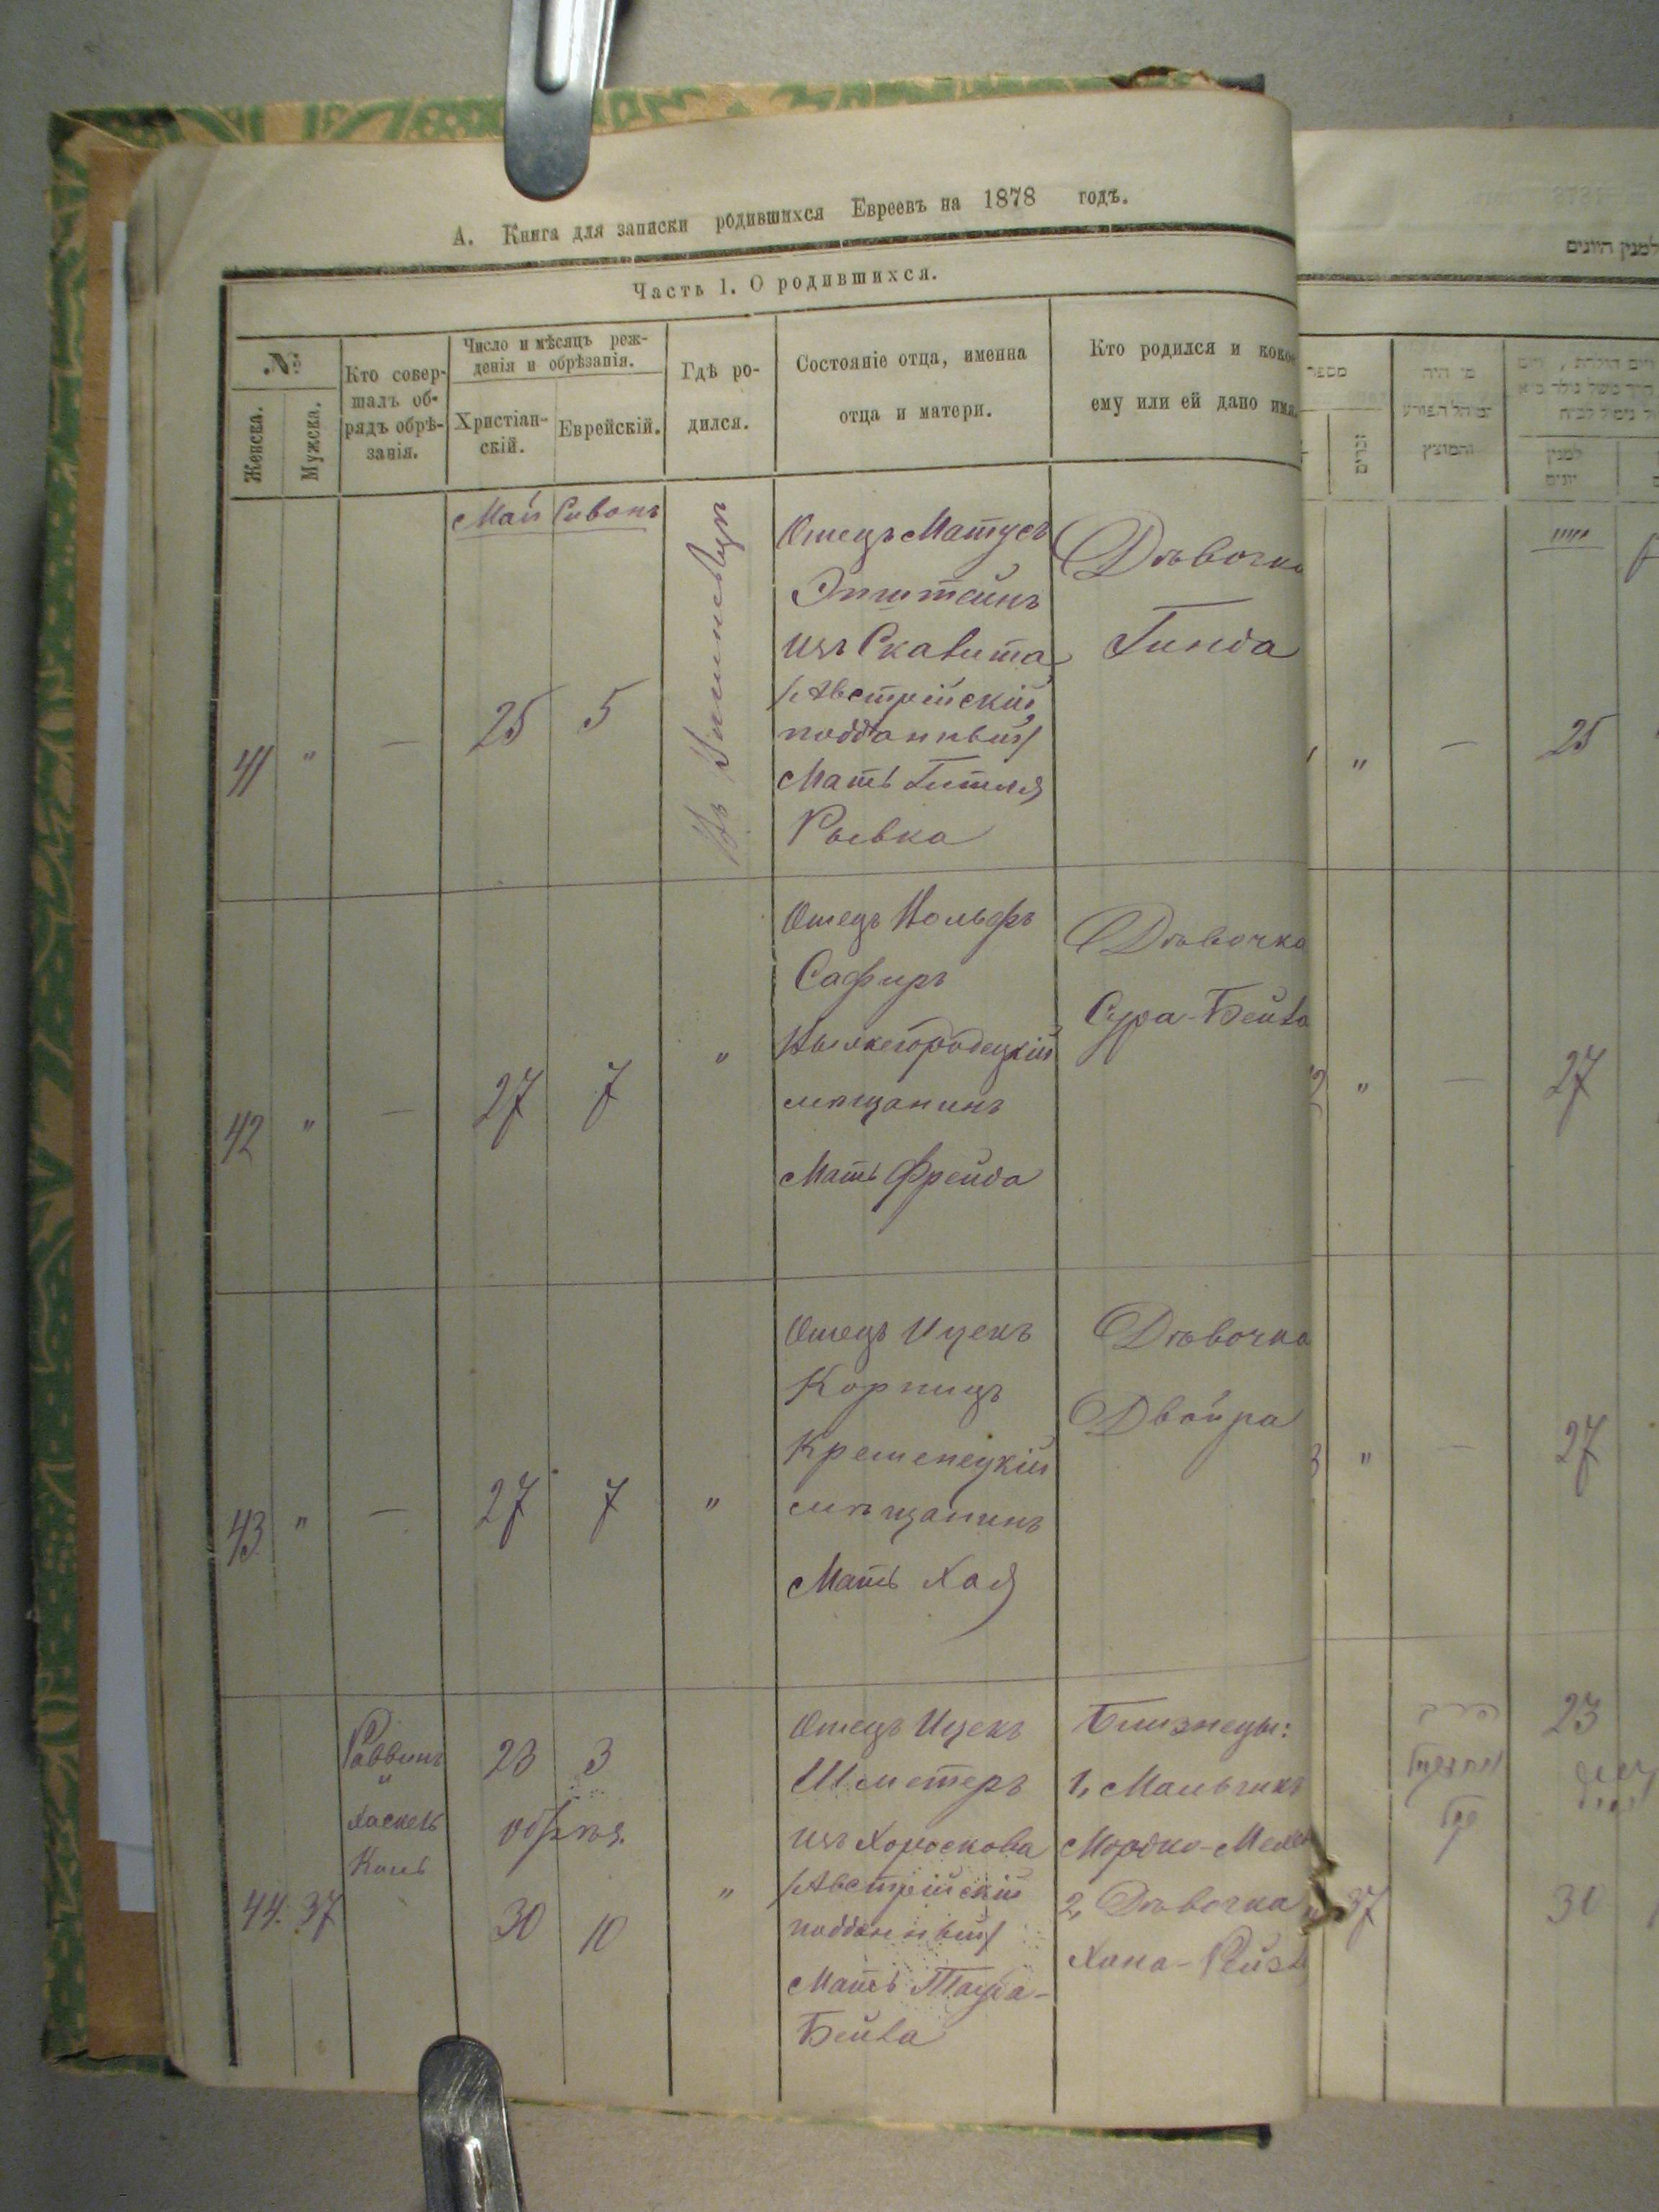 А. Книга для записки родившихся Евреевъ на 1878 годъ.
Часть 1. О родившихся.
№
Женска.
Мужска.
Кто совер-
шалъ об-
рядъ обрѣ-
занія.
Число и мѣсяцъ рож-
денія и обрѣзанія.
Христіан-
скій.
Еврейскій.
Гдѣ ро-
дился.
Состояніе отца, имена
отца и матери.
Кто родился и како-
ему или ей дано имя.
Май Сивонъ
41 " — 25 5
Отецъ Матусъ
Эпштейнъ
изъ Скалита
/Австрійскій
подданный/
Мать Гитля
Рывка
Дѣвочка
Гинда
42 " — 27 7 "
Отецъ Вольфъ
Сафиръ
Вышегородецкій
мѣщанинъ
Мать Фрейда
Дѣвочка
Сура-Бейла
43 " — 27 7 "
Отецъ Ицекъ
Корницъ
Кременецкій
мѣщанинъ
Мать Хая
Дѣвочка
Двойра
44. 37
Раввинъ
и
Хаскель
Коль
23 3
обрѣз.
30 10
"
Отецъ Ицекъ
Шметеръ
изъ Хороскова
/Австрійскій
подданный/
Мать Тауба-
Бейла
Близнецы:
1, Мальчикъ
Мордко-
2, Дѣвочка
Хана-
למנין היונים
מספר
זכרים
מי היה
והמוצץ
למנין
" — 25
" — 27
" — 27
23
37 30